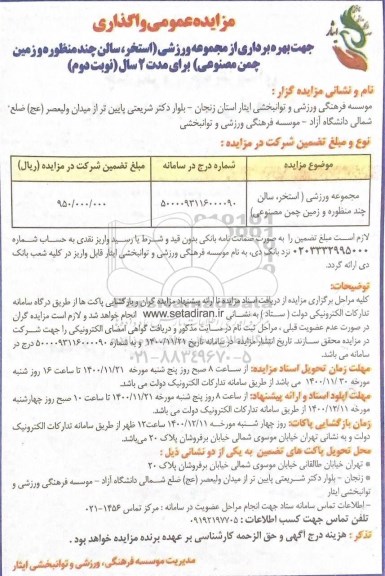 مزایده عمومی واگذاری
جهت بهره برداری از مجموعه ورزشی (استخر، سالن چند منظوره و زمین
چمن مصنوعی) برای مدت ۲ سال (نوبت دوم)
نام و نشانی مزایده گزار :
موسسه فرهنگی ورزشی و توانبخشی ایثار استان زنجان - بلوار دکتر شریعتی پایین تر از میدان ولیعصر (عج) ضلع
شمالی دانشگاه آزاد - موسسه فرهنگی ورزشی و توانبخشی
نوع و مبلغ تضمین شرکت در مزایده :
موضوع مزایده
شماره درج در سامانه
مبلغ تضمین شرکت در مزایده (ریال)
مجموعه ورزشی ( استخر، سالن
چند منظوره و زمین چمن مصنوعی)
۵۰۰۰۰۹۳۱۱۶۰۰۰۰۹۰
۹۵۰/۰۰۰/۰۰۰
لازم است مبلغ تضمین را به صورت ضمانت نامه بانکی بدون قید و شرط یا رسید واریز نقدی به حساب شماره
۰۲۰۳۳۳۲۹۹۵۰۰۰ نزد بانک دی، به نام موسسه فرهنگی ورزشی و توانبخشی ایثار قابل واریز در کلیه شعب بانک
دی ارائه گردد.
توضیحات:
کلیه مراحل برگزاری مزایده از دریافت اسناد مزایده تا ارائه پیشنهاد مزایده گران و بازگشایی پاکت ها از طریق درگاه سامانه
تدارکات الکترونیکی دولت ( ستاد ) به نشانی www.setadiran.ir انجام خواهد شد و لازم است مزایده گران
در صورت عدم عضویت قبلی ، مراحل ثبت نام در سایت مذکور و دریافت گواهی امضای الکترونیکی را جهت شرکت
در مزایده محقق سازند. تاریخ انتشار مزایده در سامانه تاریخ ۱۴۰۰/۱۱/۲۱ و به شماره ۵۰۰۰۰۹۳۱۱۶۰۰۰۰۹۰ درج در
سامانه می باشد.
۰۲۱-۸۸۳۴۹۶۷۰-۵
مهلت زمان تحویل اسناد مزایده: از ساعت ۸ صبح روز پنج شنبه مورخه ۱۴۰۰/۱۱/۲۱ تا ساعت ۱۶ روز شنبه
مورخه ۱۴۰۰/۱۱/۳۰ می باشد از طریق سامانه تدارکات الکترونیک دولت می باشد.
مهلت آپلود اسناد و ارائه پیشنهاد: از ساعت ۸ روز پنج شنبه مورخه ۱۴۰۰/۱۱/۲۱ تا ساعت ۱۰ صبح روز چهارشنبه
مورخه ۱۴۰۰/۱۲/۱۱ از طریق سامانه تدارکات الکترونیک دولت می باشد.
زمان بازگشایی پاکات: روز چهار شنبه مورخه ۱۴۰۰/۱۲/۱۱ ساعت ۱۲ ظهر از طریق سامانه تدارکات الکترونیک
دولت و به نشانی تهران خیابان موسوی شمالی خیابان برفروشان پلاک ۲۰ می باشد.
محل تحویل پاکت های تضمین به یکی از دو نشانی ذیل :
* تهران خیابان طالقانی خیابان موسوی شمالی خیابان برفروشان پلاک ۲۰
* زنجان - بلوار دکتر شریعتی پایین تر از میدان ولیعصر (عج) ضلع شمالی دانشگاه آزاد - موسسه فرهنگی ورزشی و
توانبخشی ایثار
- اطلاعات تماس سامانه ستاد جهت انجام مراحل عضویت در سامانه : مرکز تماس ۱۴۵۶-۰۲۱
تلفن تماس جهت کسب اطلاعات : ۰۹۱۹۲۱۹۷۷۰۵
تذکر : هزینه درج آگهی و حق الزحمه کارشناسی بر عهده برنده مزایده خواهد بود .
مدیریت موسسه فرهنگی، ورزشی و توانبخشی ایثار